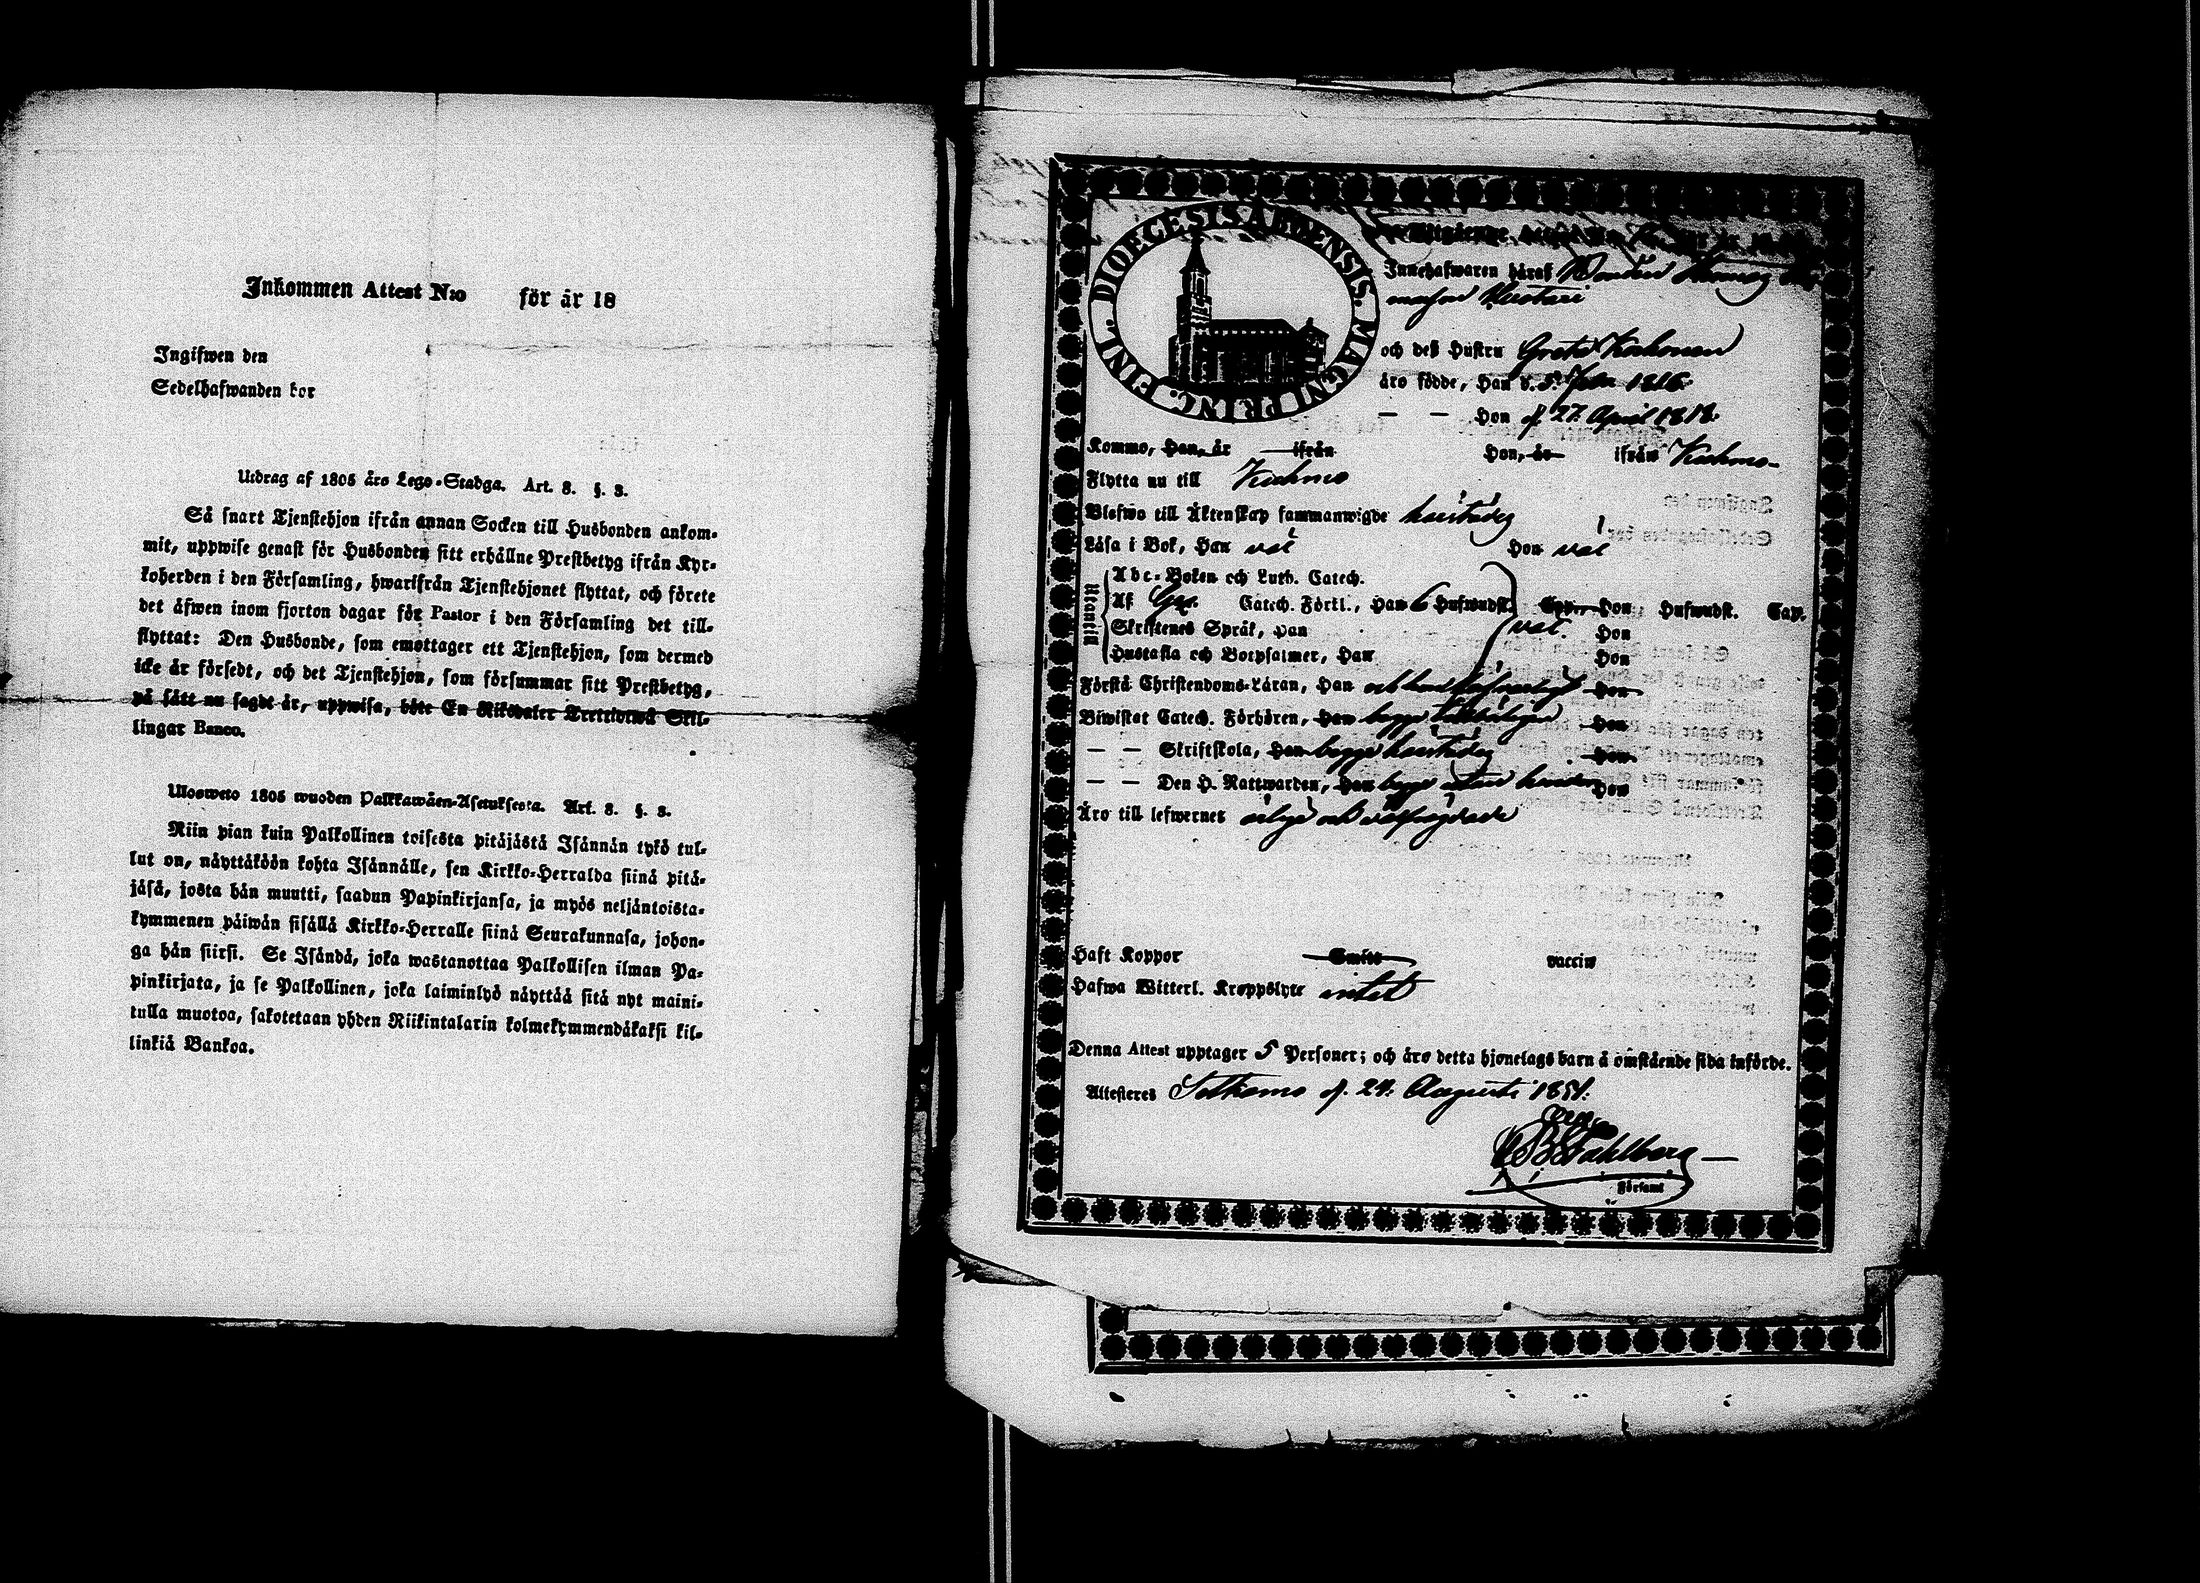 Inkommen Attest N:o för år 18
Ingifwen den
Sedelhafwanden bor
Utdrag af 1805 års Lego-Stadga. Art. 8. §. 3.
Så snart Tjenstehjon ifrån annan Socken till Husbonden ankom-
mit, uppwise genast för Husbonden sitt erhållne Prestbetyg ifrån Kyr-
koherden i den Församling, hwarifrån Tjenstehjonet flyttat, och förete
det äfwen inom fjorton dagar för Pastor i den Församling det till-
flyttat: Den Husbonde, som emottager ett Tjenstehjon, som dermed
icke är försedt, och det Tjenstehjon, som försummar sitt Prestbetyg,
på sätt nu sagdt är, uppwisa, böte En Riksdaler Trettiotwå Skil-
lingar Banco.
Ulosweto 1805 wuoden Palkkawäen-Asetuksesta. Art. 8. §. 3.
Niin pian kuin Palkollinen toisesta pitäjästä Isännän tykö tul-
lut on, näyttäköön kohta Isännälle, sen Kirkko-Herralda siinä pitä-
jäsä, josta hän muutti, saadun Papinkirjansa, ja myös neljäntoista-
kymmenen päiwän sisällä Kirkko-Herralle siinä Seurakunnasa, johon-
ga hän siirsi. Se Isändä, joka wastanottaa Palkollisen ilman Pa-
pinkirjata, ja se Palkollinen, joka laiminlyö näyttää sitä nyt maini-
tulla muotoa, sakotetaan yhden Riikintalarin kolmekymmendäkaksi kil-
linkiä Bankoa.
DIOECESIS ABOENSIS. MAGNI PRINC. FINL.
Utgående Attest
Innehafwaren häraf Bonden
och deß Hustru Greta Korhonen
äro födde, Han d. 5. 1816.
— — Hon d. 27. April 1818.
Kommo, Han, år ifrån Hon, år ifrån Kuhmo
Flytta nu till Kuhmo
Blefwo till Äktenskap sammanwigde
Läsa i Bok, Han väl Hon väl
Utantill
Abc-Boken och Luth. Catech.
Af Catech. Förkl., Han 6 Hufwudst. Cap. Hon Hufwudst. Cap.
Skriftenes Språk, Han väl. Hon
Hustafla och Botpsalmer, Han Hon
Förstå Christendoms-Läran, Han Hon
Biwistat Catech. Förhören, Han begge Hon
— — Skriftskola, Han begge Hon
— — Den H. Nattwarden, Han begge utan hinder Hon
Äro till lefwernes ärlige och välfrejdade
Haft Koppor Smitt vaccin
Hafwa Witterl. Kroppslyte intet
Denna Attest upptager 5 Personer; och äro detta hjonelags barn å omstående sida införde.
Attesteres Sotkamo d. 24. Augusti 1851.
Wahlberg
Församl